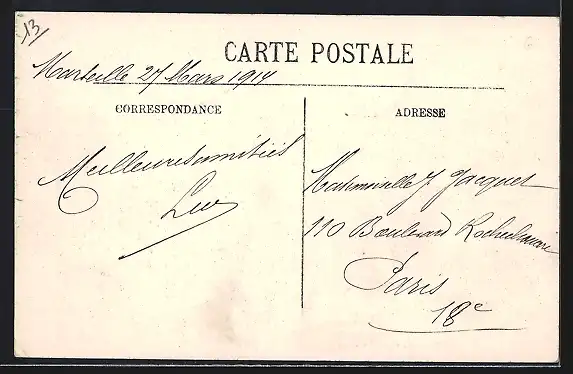 13
CARTE POSTALE
Marseille 27 Mars 1914
CORRESPONDANCE
ADRESSE
Meilleures amitiés
Mademoiselle J Jacquet
110 Boulevard Rochechouart
Paris
18e